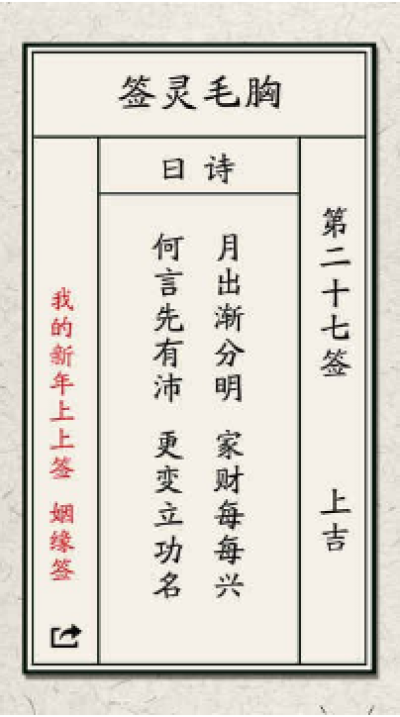 签灵毛胸
日诗
第二十七签 上吉
月出渐分明 家财每每兴
何言先有沛 更变立功名
我的新年上上签 姻缘签